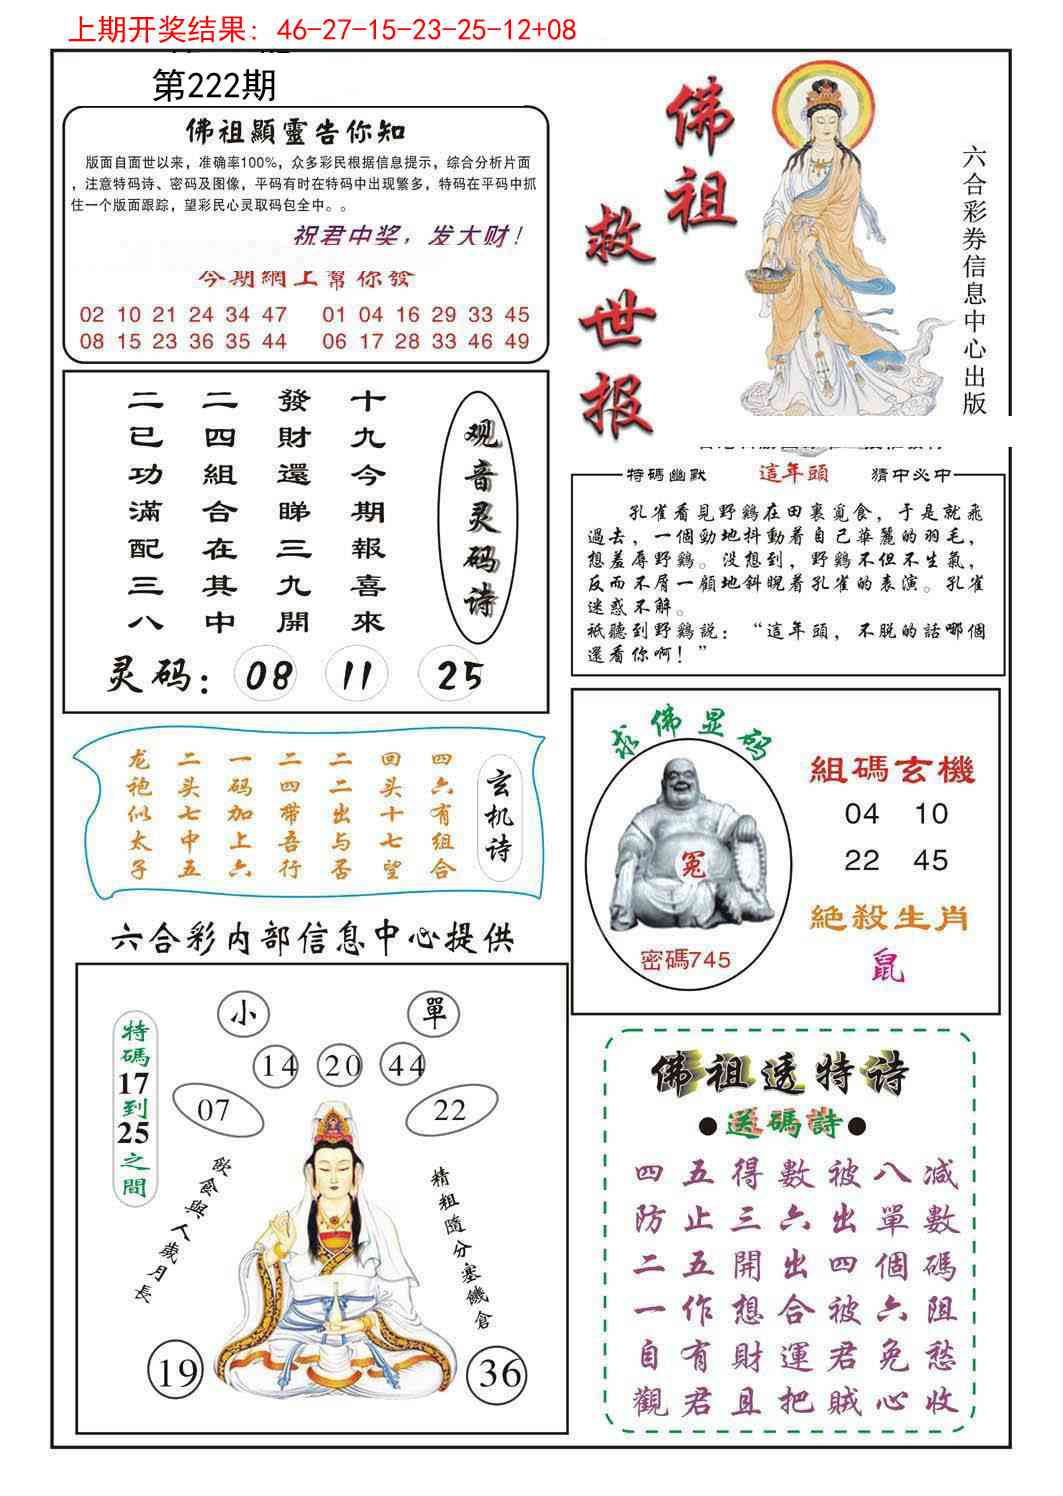 上期开奖结果: 46-27-15-23-25-12+08
第222期
佛祖顯靈告你知
版面自面世以来，准确率100%，众多彩民根据信息提示，综合分析片面
，注意特码诗、密码及图像，平码有时在特码中出现繁多，特码在平码中抓
住一个版面跟踪，望彩民心灵取码包全中。。
祝君中奖，发大财！
今期網上幫你發
02 10 21 24 34 47 01 04 16 29 33 45
08 15 23 36 35 44 06 17 28 33 46 49
佛祖
救世报
六合彩券信息中心出版
观音灵码诗
十九今期報喜來
發財還睇三九開
二四組合在其中
二已功滿配三八
灵码: 08 11 25
特碼幽默 這年頭 猜中必中
孔雀看見野鷄在田裏覓食，于是就飛
過去，一個勁地抖動着自己華麗的羽毛，
想羞辱野鷄。没想到，野鷄不但不生氣，
反而不屑一顧地斜睨着孔雀的表演。孔雀
迷惑不解。
祇聽到野鷄説：“這年頭，不脱的話哪個
還看你啊！”
玄机诗
四六有组合
回头十七望
二二出与否
二四带吾行
一码加上六
二头七中五
龙袍似太子
求佛显码
冤
密碼745
組碼玄機
04 10
22 45
絕殺生肖
鼠
六合彩内部信息中心提供
小 單
14 20 44
07 22
特碼17到25之間
飲食與人歲月長
精粗隨分塞饑倉
19 36
佛祖透特诗
●送碼詩●
四五得數被八减
防止三六出單數
二五開出四個碼
一作想合被六阻
自有財運君免愁
觀君且把賊心收